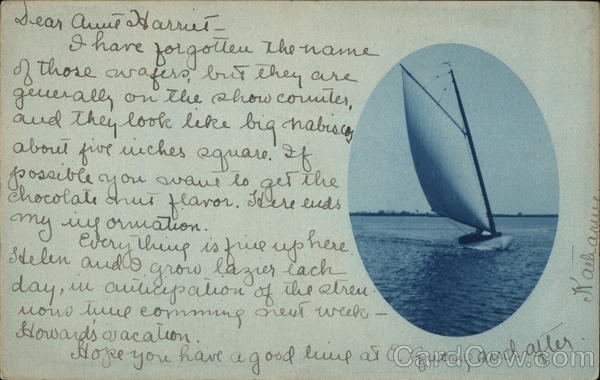 Dear Aunt Harriet—
I have forgotten the name
of those wafers, but they are
generally on the show counter,
and they look like big nabiscos
about five inches square. If
possible you want to get the
chocolate nut flavor. Here ends
my information.
Everything is fine up here.
Helen and I grow lazier each
day, in anticipation of the stren-
uous time comming next week—
Howard's vacation.
Hope you have a good time at and after.
Katharine
CardCow.com